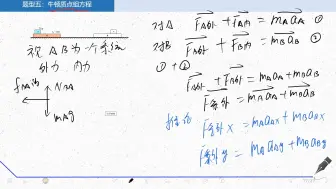 题型五：牛顿质点组方程
视 A B 为一个系统
外力 内力
f地A N地A
mAg
对A F→A外 + F→BA = mAaA→ ①
对B F→B外 + F→AB = mBaB→ ②
①+②
F→A外 + F→B外 = mAaA→ + mBaB→
F→系外 = mAaA→ + mBaB→
推论 F系外x = mAaAx + mBaBx
F系外y = mAaAy + mBaBy